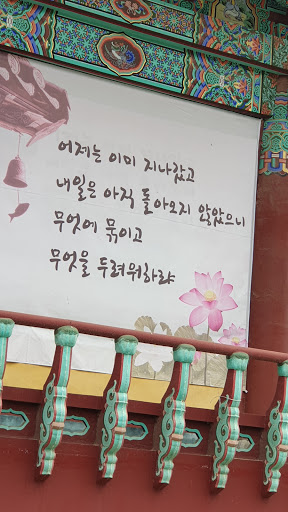 어제는 이미 지나갔고
내일은 아직 돌아오지 않았으니
무엇에 묶이고
무엇을 두려워하랴